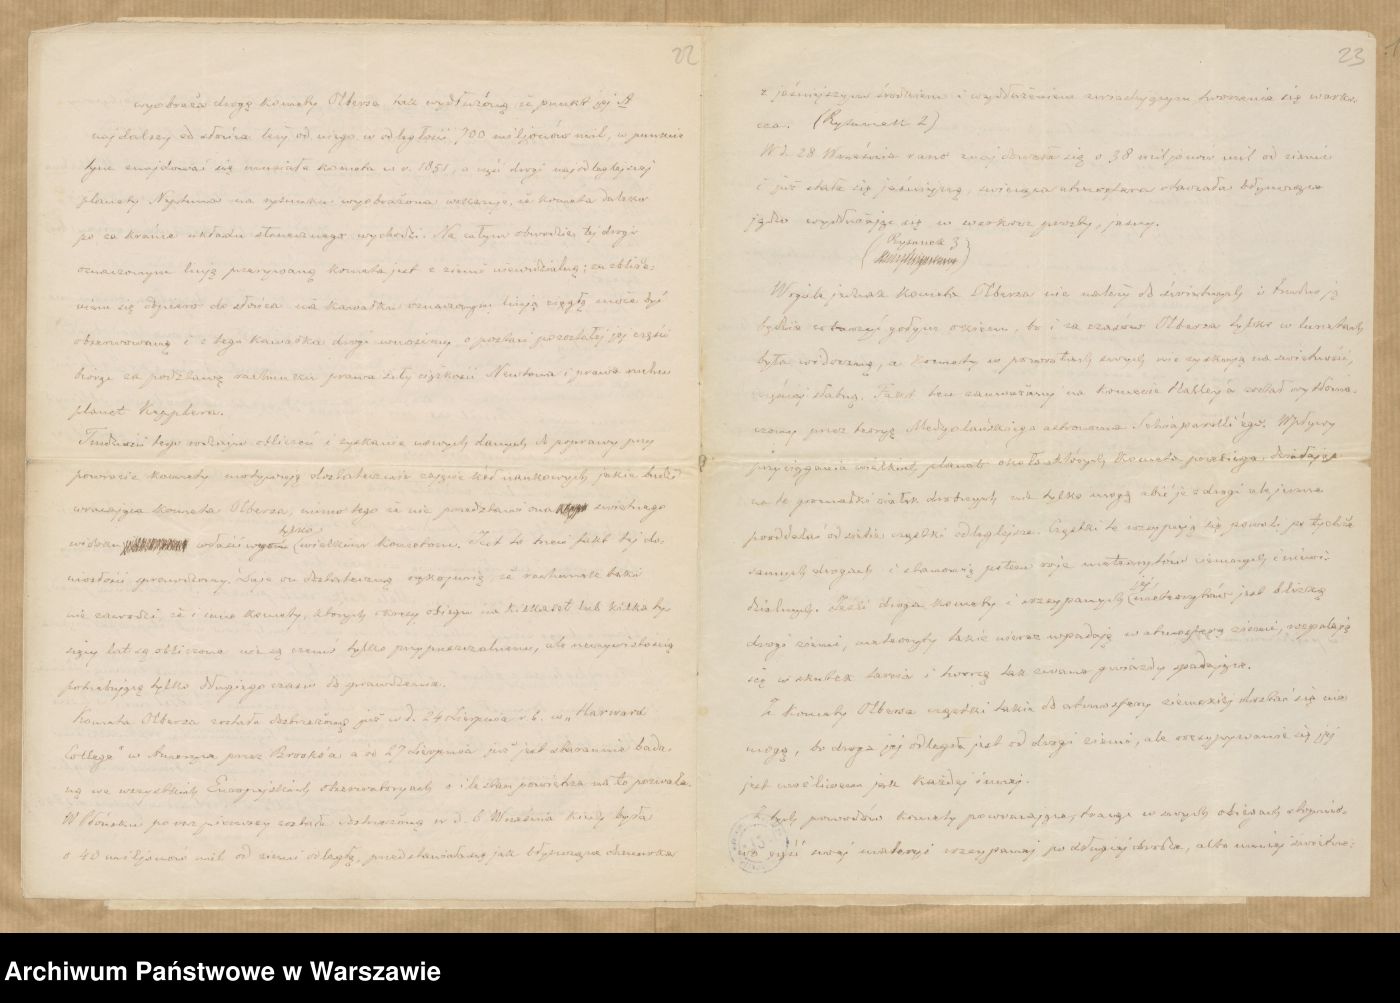 22
wyobraża drogę komety Olbersa tak wydłużoną że punkt jej A
najdalszy od słońca leży od niego w odległości 700 milijonów mil, w punkcie
tym znajdować się musiała kometa w r. 1851, a część drogi najodleglejszej
planety Neptuna na rysunku wyobrażona wskazuje, że kometa daleko
po za krańce układu słonecznego wychodzi. Na całym obwodzie tej drogi
oznaczonym liniją przerywaną kometa jest z ziemi niewidzialną; za zbliże-
niem się dopiero do słońca na kawałku oznaczonym liniją ciągłą może być
obserwowaną i z tego kawałka drogi wnosimy o postaci pozostałej jej części
biorąc za podstawę rachunku prawa siły ciężkości Newtona i prawa ruchu
planet Kepplera.
Trudność tego rodzaju obliczeń i zyskanie nowych danych do poprawy przy
powrocie komety motywują dostatecznie zajęcie kół naukowych jakie budzi
wracająca kometa Olbersa, mimo tego że nie przedstawi ona świetnego
widoku właściwego tylko wielkim kometom. Jest to trzeci fakt tej do-
niosłości sprawdzony. Daje on dostateczną rękojmię, że rachunek taki
nie zawodzi, że i inne komety, których okresy obiegu na kilkaset lub kilka ty-
sięcy lat są obliczone nie są czemś tylko przypuszczalnem, ale rzeczywistością
potrzebującą tylko długiego czasu do sprawdzenia.
Kometa Olbersa została dostrzeżoną już w d. 24 Sierpnia r. b. w „Harward
College" w Ameryce przez Brooks'a a od 27 Sierpnia już jest starannie bada-
ną we wszystkich Europejskich obserwatoryach o ile stan powietrza na to pozwala.
W Płońsku po raz pierwszy została dostrzeżoną w d. 6 Września kiedy była
o 40 milijonów mil od ziemi odległą, przedstawiała się jak błyszcząca chmurka
23
z jaśniejszym środkiem i wydłużeniem zwiastującym tworzenie się warko-
cza. (Rysunek 2)
W d. 28 Września rano znajdowała się o 38 milijonów mil od ziemi
i już stała się jaśniejszą, świecąca atmosfera otaczała błyszczące
jądro wydłużając się w warkocz prosty, jasny.
(Rysunek 3)
W ogóle jednak kometa Olbersa nie należy do świetnych i trudno ją
będzie zobaczyć gołym okiem, bo i za czasów Olbersa tylko w lunetach
była widoczną, a komety w powrotach swoich nie zyskują na świetności,
raczej słabną. Fakt ten zauważany na komecie Halley'a został wytłoma-
czony przez teoryę Medyolańskiego astronoma Schiaparelli'ego. Wpływy
przyciągania wielkich planet około których kometa przebiega działając
na te gromadki ciałek drobnych nie tylko mogą zbić je z drogi ale jeszcze
pooddzielać od siebie cząstki odleglejsze. Cząstki te rozsypują się powoli po tychże
samych drogach i stanowią potem roje meteorytów ciemnych i niewi-
dzialnych. Jeśli droga komety i rozsypanych jej meteorytów jest blizką
drogi ziemi, meteoryty takie nieraz wpadają w atmosferę ziemi, rozpalają
się w skutek tarcia i tworzą tak zwane gwiazdy spadające.
Z komety Olbersa cząstki takie do atmosfery ziemskiej dostać się nie
mogą, bo droga jej odległa jest od drogi ziemi, ale rozsypywanie się jej
jest możliwem jak każdej innej.
Z tych powodów komety powracające, tracąc w swoich obiegach stopnio-
wo część swojej materyi rozsypanej po długiej drodze, albo mniej świetne-
Archiwum Państwowe w Warszawie